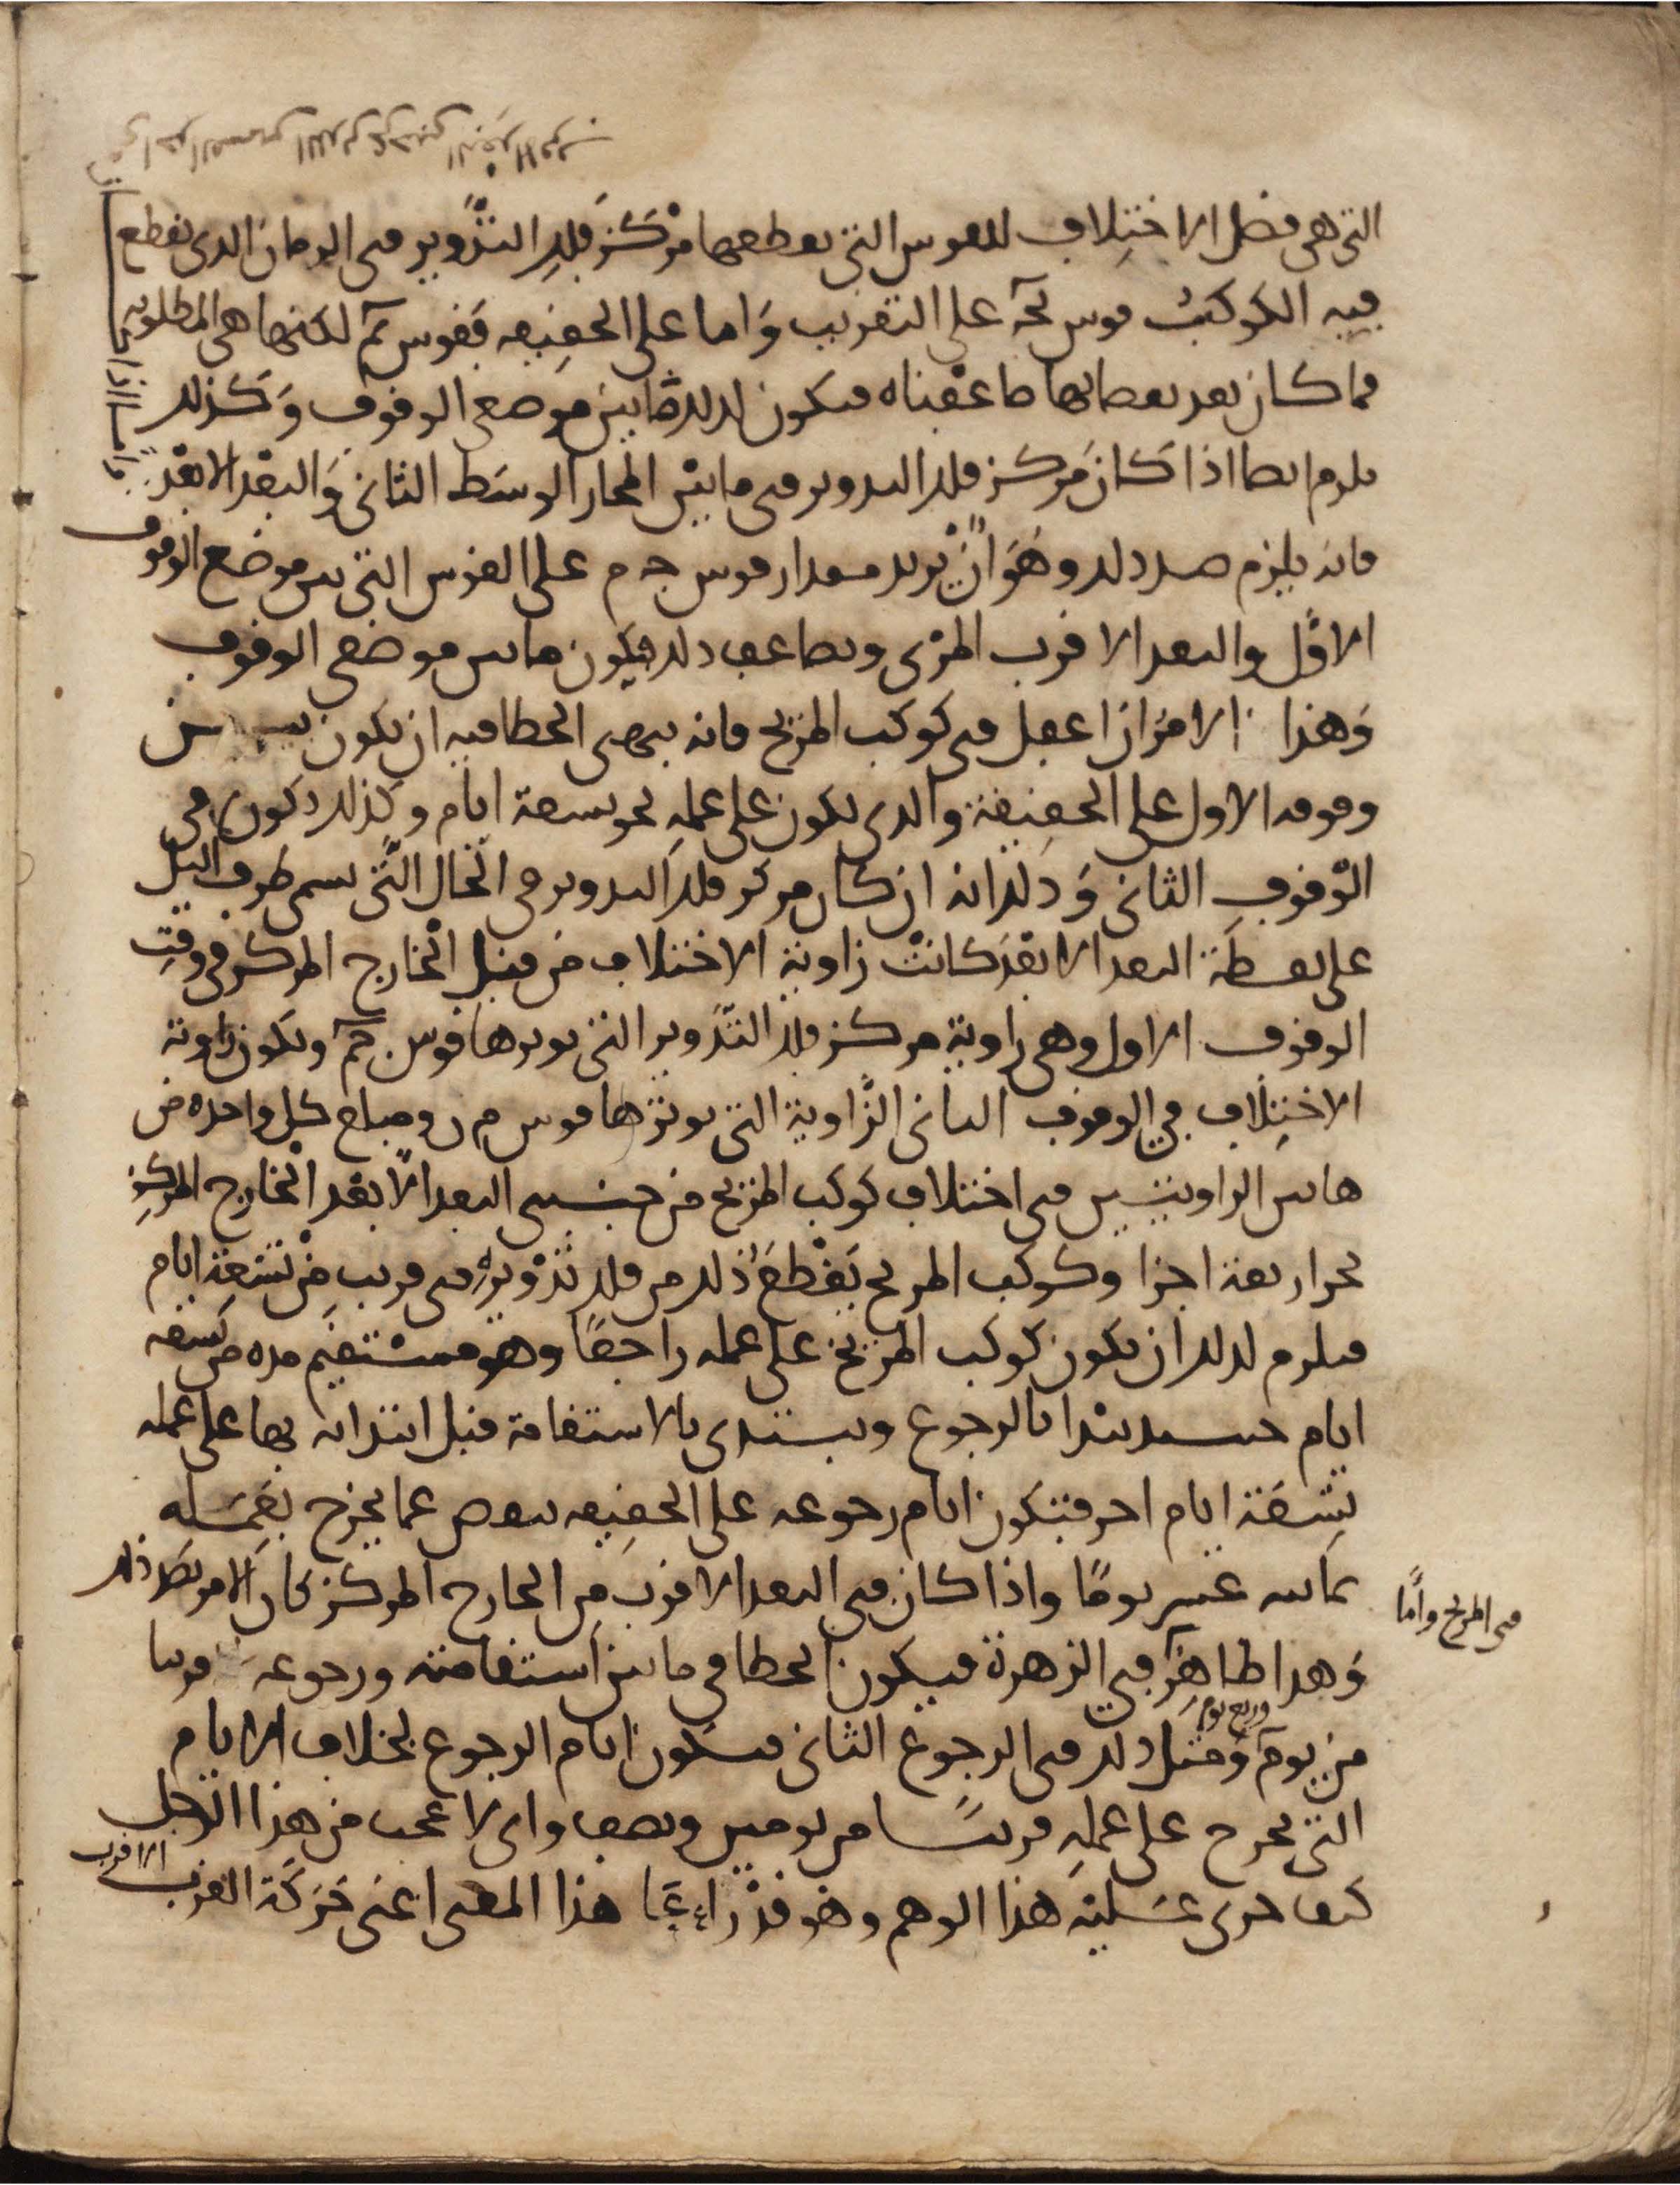 التي هي فضل الاختلاف للقوس التي يقطعها مركز فلك التدوير في الزمان الذي يقطع
فيه الكوكب قوس لجه على التقريب واما على الحقيقه فقوس لكنها هي المطلوبه
فما كان بعد نقصانها ضاعفناه فيكون لذلك ما بين موضعي الوقوف وكذلك
يلزم ايضا اذا كان مركز فلك التدوير في ما بين المجاز الوسط الثاني والبعد الابعد
فانه يلزم ضد ذلك وهو ان يزيد مقدار قوس جم على القوس التي بين موضع الوقوف
الاول والبعد الاقرب المرئي ويضاعف ذلك فيكون ما بين موضعي الوقوف
وهذا الامر ان اغفل في كوكب المريخ فانه ينتهي الخطا فيه ان يكون بين
وقوفه الاول على الحقيقة والذي يكون على عمله نحو تسعة ايام وكذلك يكون في
الوقوف الثاني وذلك انه ان كان مركز فلك التدوير في الحال التي تسمى طرف الليل
على نقطة البعد الابعد كانت زاوية الاختلاف من قبل الخارج المركز في وقت
الوقوف الاول وهي زاوية مركز فلك التدوير التي يوترها قوس جم وتكون زاوية
الاختلاف في الوقوف الثاني الزاوية التي يوترها قوس م ن ومبلغ كل واحده من
هاتين الزاويتين في اختلاف كوكب المريخ من جنبتي البعد الابعد الخارج المركز
نحو اربعة اجزا وكوكب المريخ يقطع ذلك من فلك تدويره في قريب من تسعة ايام
فيلزم لذلك ان يكون كوكب المريخ على عمله راجعا وهو مستقيم مده من تسعه
ايام حينئذ يبتدا بالرجوع ويبتدي بالاستقامة قبل ابتدائه بها على عمله
بتسعة ايام اخر فتكون ايام رجوعه على الحقيقه تنقص عما يخرج بعمله
ثمانيه عشر يوما واذا كان في البعد الاقرب من الخارج المركز كان الامر بضد ذلك
في المريخ واما
وهذا ظاهر في الزهرة فيكون الخطا في ما بين استقامته ورجوعه قريبا
من يوم وربع يوم ومثل ذلك في الرجوع الثاني فتكون ايام الرجوع بخلاف الايام
التي تخرج على عمله قريبا من يومين ونصف واني لاعجب من هذا الرجل
كيف جرى عليه هذا الوهم وهو قد راعا هذا المعنى اعني حركة القرب
الاقرب